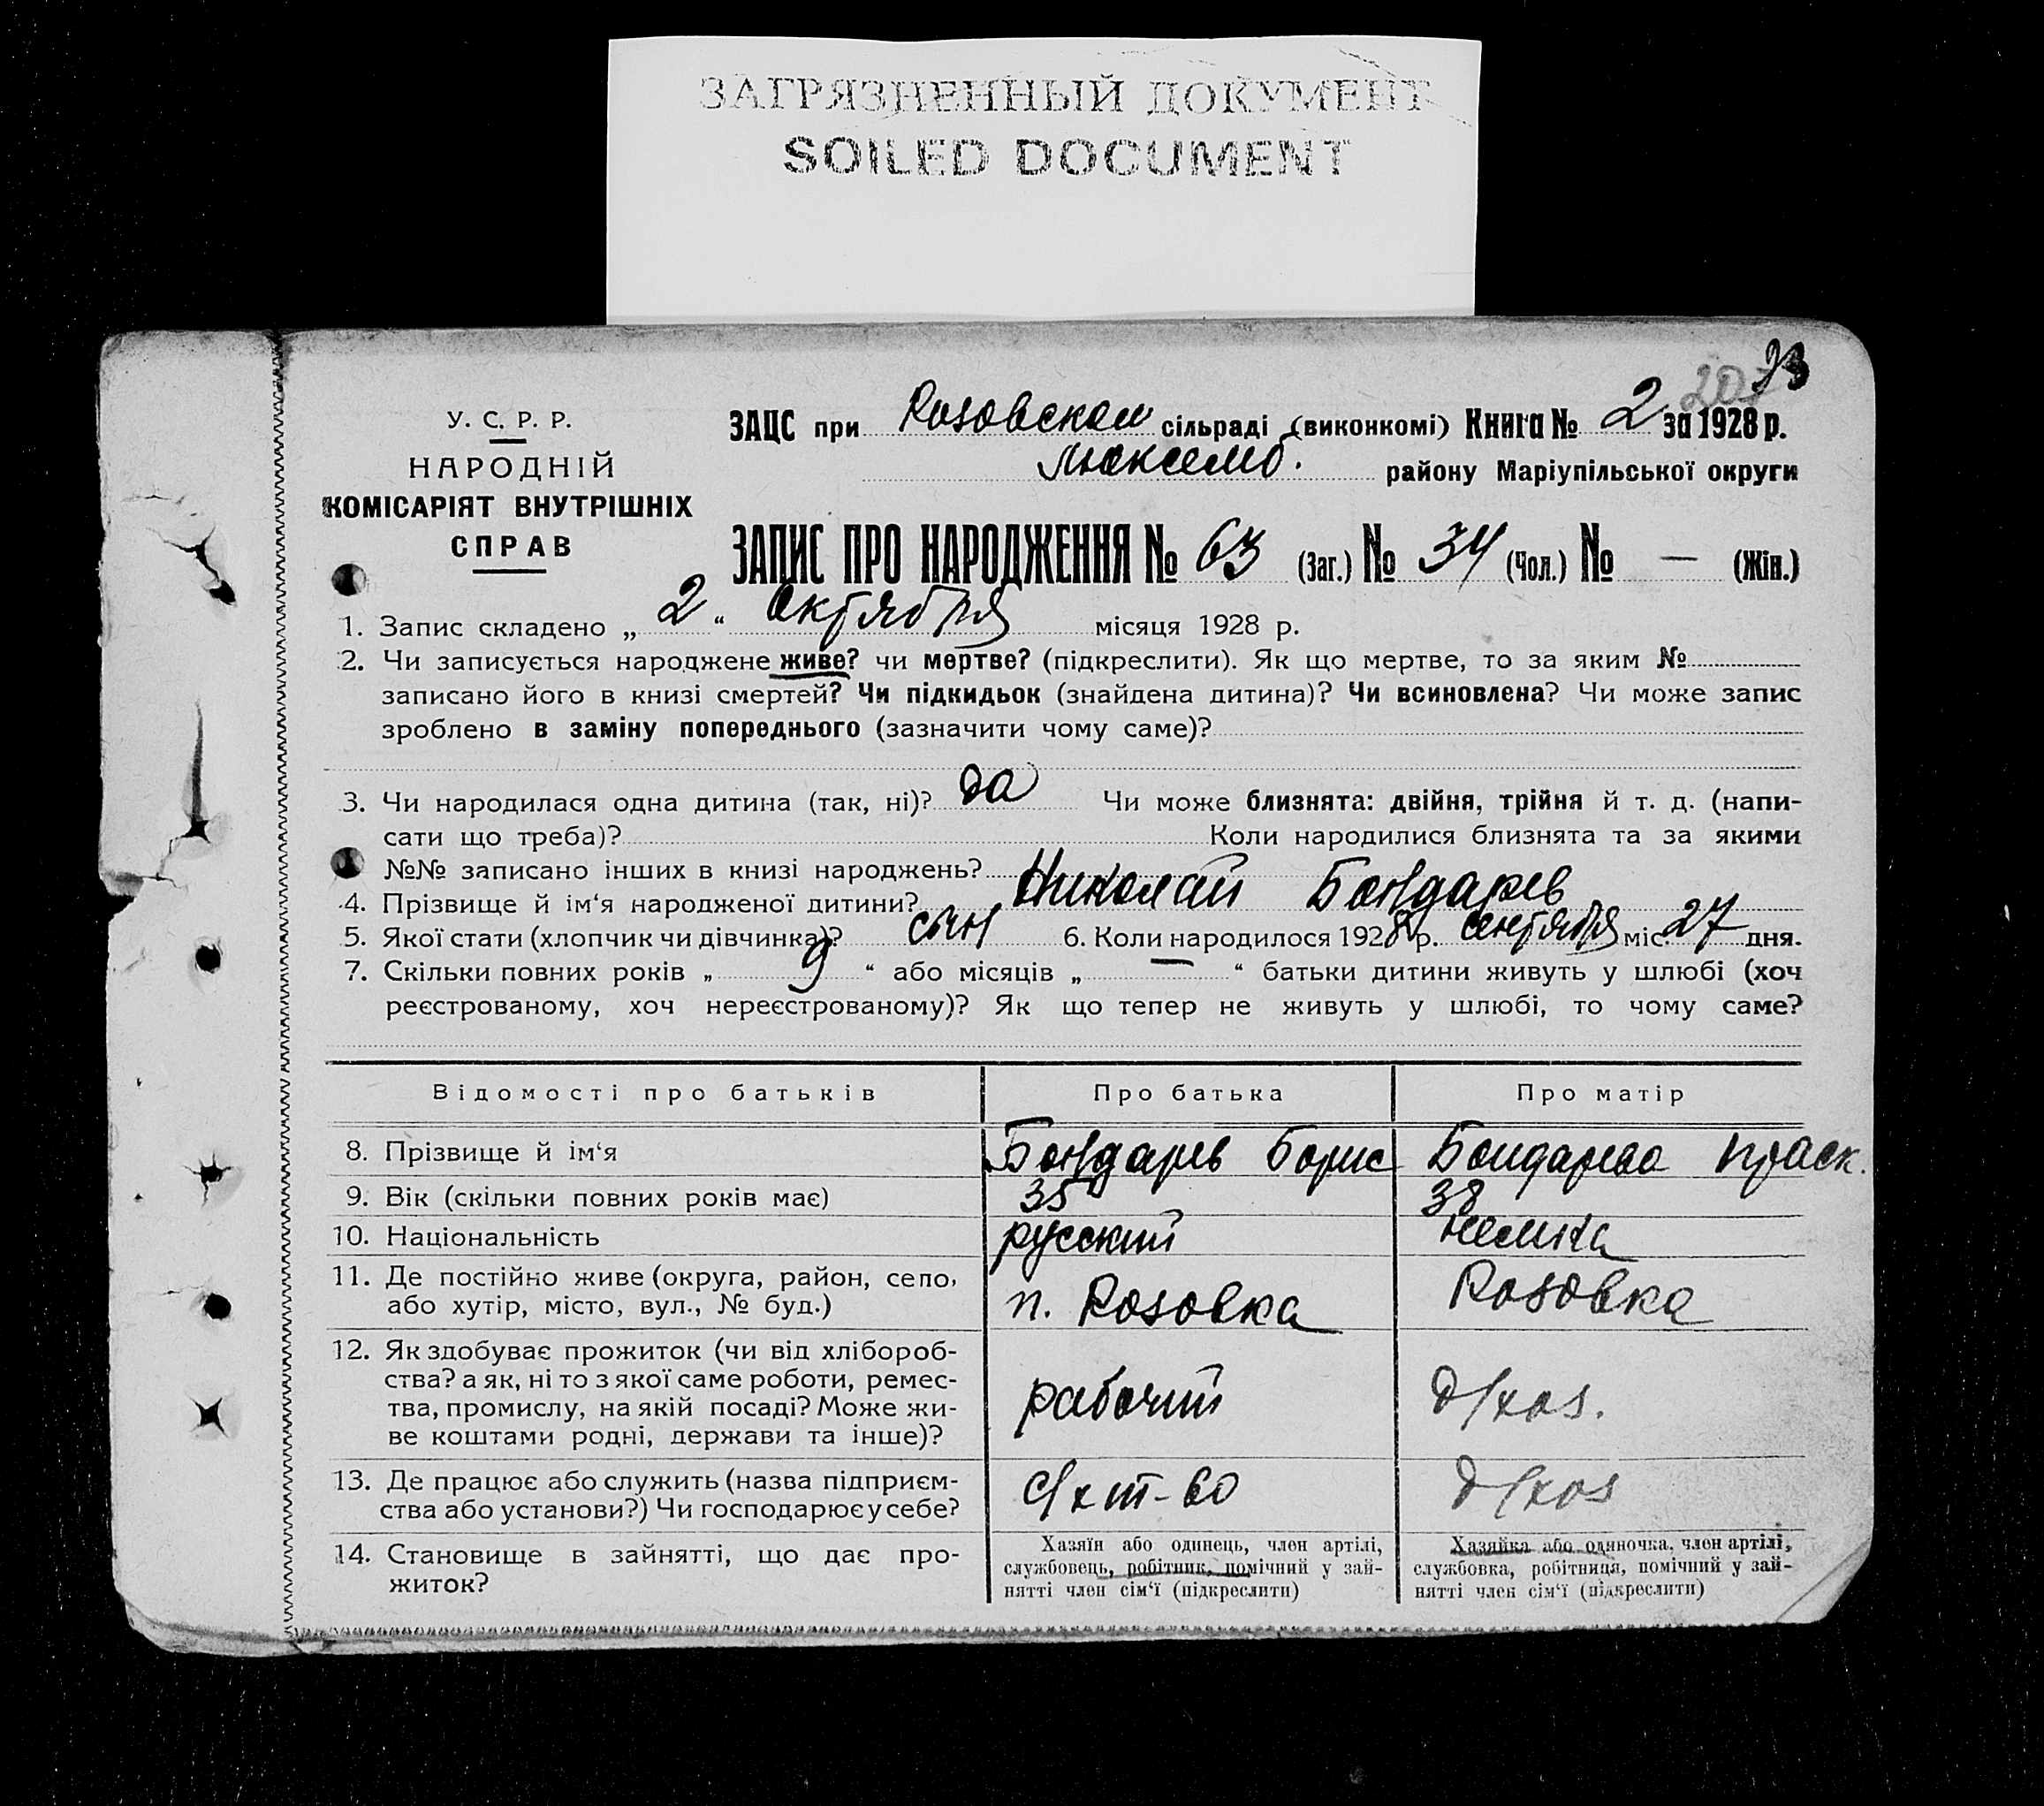 ЗАГРЯЗНЕННЫЙ ДОКУМЕНТ
SOILED DOCUMENT
93
207
У. С. Р. Р.
НАРОДНІЙ
КОМІСАРІЯТ ВНУТРІШНІХ
СПРАВ
ЗАЦС при Розовском сільраді (виконкомі) Книга № 2 за 1928 р.
району Маріупільської округи
ЗАПИС ПРО НАРОДЖЕННЯ № 63 (Заг.) № 34 (Чол.) № — (Жін.)
1. Запис складено „ 2 “ Октября місяця 1928 р.
2. Чи записується народжене живе? чи мертве? (підкреслити). Як що мертве, то за яким №
записано його в книзі смертей? Чи підкидьок (знайдена дитина)? Чи всиновлена? Чи може запис
зроблено в заміну попереднього (зазначити чому саме)?
3. Чи народилася одна дитина (так, ні)? да Чи може близнята: двійня, трійня й т. д. (напи-
сати що треба)? Коли народилися близнята та за якими
№№ записано інших в книзі народжень?
4. Прізвище й ім‘я народженої дитини? Николай Бондарев
5. Якої стати (хлопчик чи дівчинка)? сын 6. Коли народилося 1928 р. сентября міс. 27 дня.
7. Скільки повних років „ 9 “ або місяців „ — “ батьки дитини живуть у шлюбі (хоч
реєстрованому, хоч нереєстрованому)? Як що тепер не живуть у шлюбі, то чому саме?
Відомості про батьків Про батька Про матір
8. Прізвище й ім‘я Бондарев Борис Бондарева Праск.
9. Вік (скільки повних років має) 35 38
10. Національність русский немка
11. Де постійно живе (округа, район, село,
або хутір, місто, вул., № буд.) п. Розовка Розовка
12. Як здобуває прожиток (чи від хлібороб-
ства? а як, ні то з якої саме роботи, ремес-
тва, промислу, на якій посаді? Може жи-
ве коштами родні, держави та інше)? рабочий д/хоз.
13. Де працює або служить (назва підприєм-
ства або установи?) Чи господарює у себе? с/хоз-во д/хоз
14. Становище в зайнятті, що дає про-
житок?
Хазяїн або одинець, член артілі,
службовець, робітник, помічний у зай-
нятті член сім‘ї (підкреслити)
Хазяйка або одиночка, член артілі,
службовка, робітниця, помічний у зай-
нятті член сім‘ї (підкреслити)